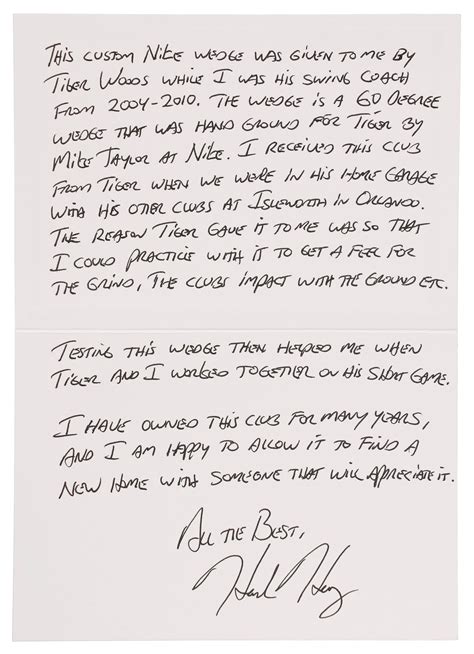 THIS CUSTOM NIKE WEDGE WAS GIVEN TO ME BY
TIGER WOODS WHILE I WAS HIS SWING COACH
FROM 2004-2010. THE WEDGE IS A 60 DEGREE
WEDGE THAT WAS HAND GROUND FOR TIGER BY
MIKE TAYLOR AT NIKE. I RECEIVED THIS CLUB
FROM TIGER WHEN WE WERE IN HIS HOME GARAGE
WITH HIS OTHER CLUBS AT ISLEWORTH IN ORLANDO.
THE REASON TIGER GAVE IT TO ME WAS SO THAT
I COULD PRACTICE WITH IT TO GET A FEEL FOR
THE GRIND, THE CLUBS IMPACT WITH THE GROUND ETC.
TESTING THIS WEDGE THEN HELPED ME WHEN
TIGER AND I WORKED TOGETHER ON HIS SHORT GAME.
I HAVE OWNED THIS CLUB FOR MANY YEARS,
AND I AM HAPPY TO ALLOW IT TO FIND A
NEW HOME WITH SOMEONE THAT WILL APPRECIATE IT.
ALL THE BEST,